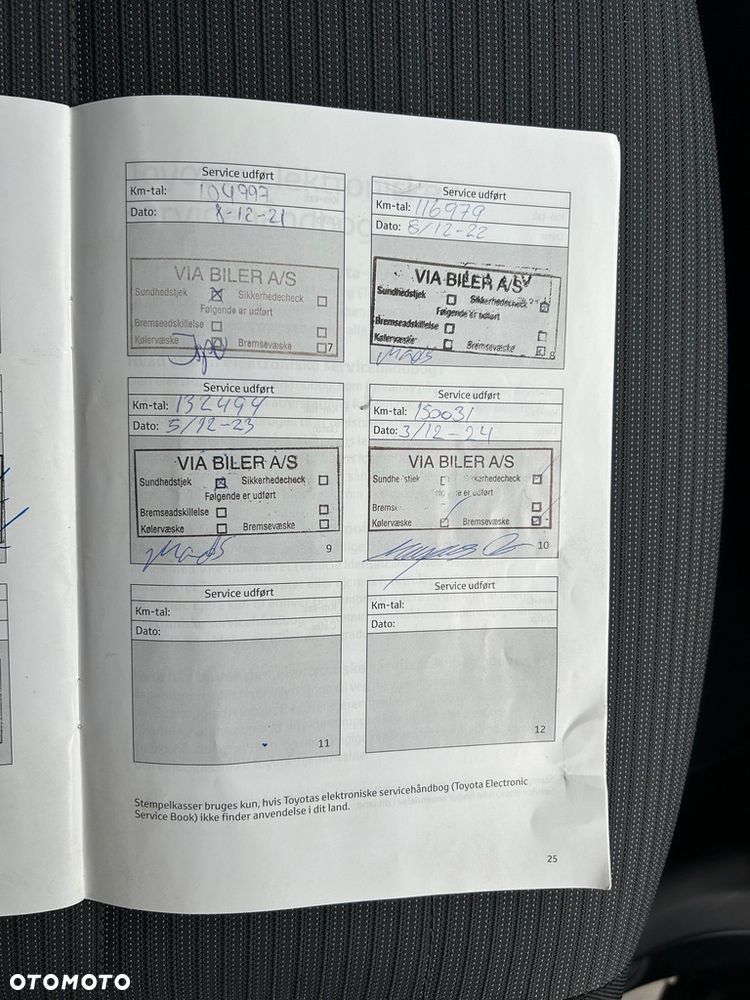 Service udført
Km-tal: 104997
Dato: 8-12-21
VIA BILER A/S
Sundhedstjek Sikkerhedecheck
Følgende er udført
Bremseadskillelse
Kølervæske Bremsevæske
7
Service udført
Km-tal: 116979
Dato: 8/12-22
VIA BILER A/S
Sundhedstjek Sikkerhedecheck
Følgende er udført
Bremseadskillelse
Kølervæske Bremsevæske
Mads
8
Service udført
Km-tal: 132494
Dato: 5/12-23
VIA BILER A/S
Sundhedstjek Sikkerhedecheck
Følgende er udført
Bremseadskillelse
Kølervæske Bremsevæske
Mads
9
Service udført
Km-tal: 150031
Dato: 3/12-24
VIA BILER A/S
Sundhe stjek Sikkerhedecheck
er udført
Bremse
Kølervæske Bremsevæske
10
Service udført
Km-tal:
Dato:
11
Service udført
Km-tal:
Dato:
12
Stempelkasser bruges kun, hvis Toyotas elektroniske servicehåndbog (Toyota Electronic
Service Book) ikke finder anvendelse i dit land.
25
OTOMOTO